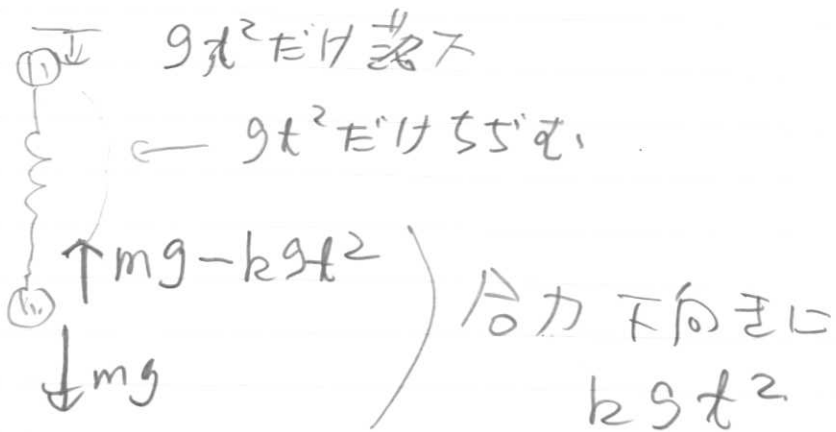 gt²だけ落下
gt²だけちぢむ
↑mg-kgt²
合力 下向きに
↓mg
kgt²